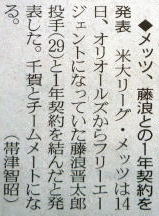 ◆メッツ、藤浪との１年契約を
発表　米大リーグ・メッツは14
日、オリオールズからフリーエー
ジェントになっていた藤浪晋太郎
投手(29)と１年契約を結んだと発
表した。千賀とチームメートにな
る。　　　　　　（帯津智昭）